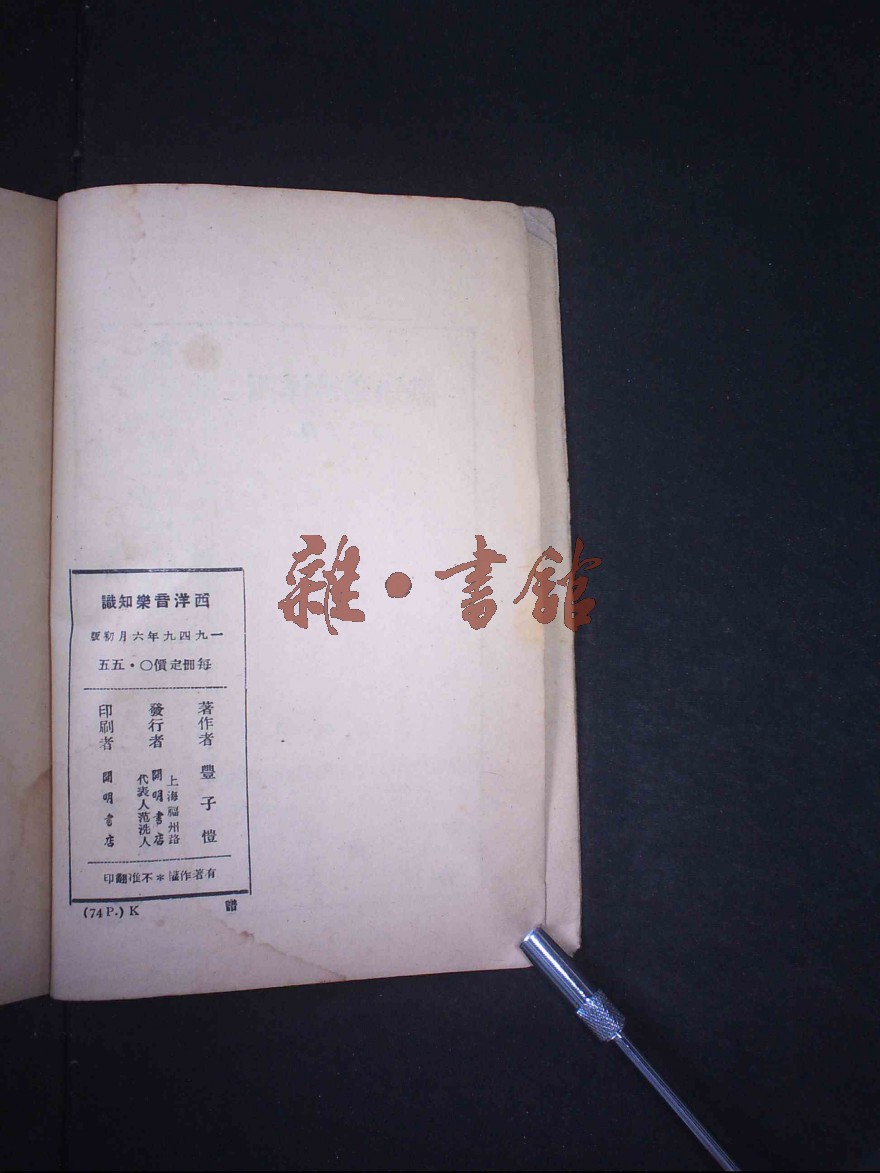 西洋音樂知識
一九四九年六月初版
每冊定價〇·五五
著作者 豐子愷
發行者 上海福州路 開明書店 代表人范洗人
印刷者 開明書店
有著作權＊不准翻印
(74 P.) K
雜·書館